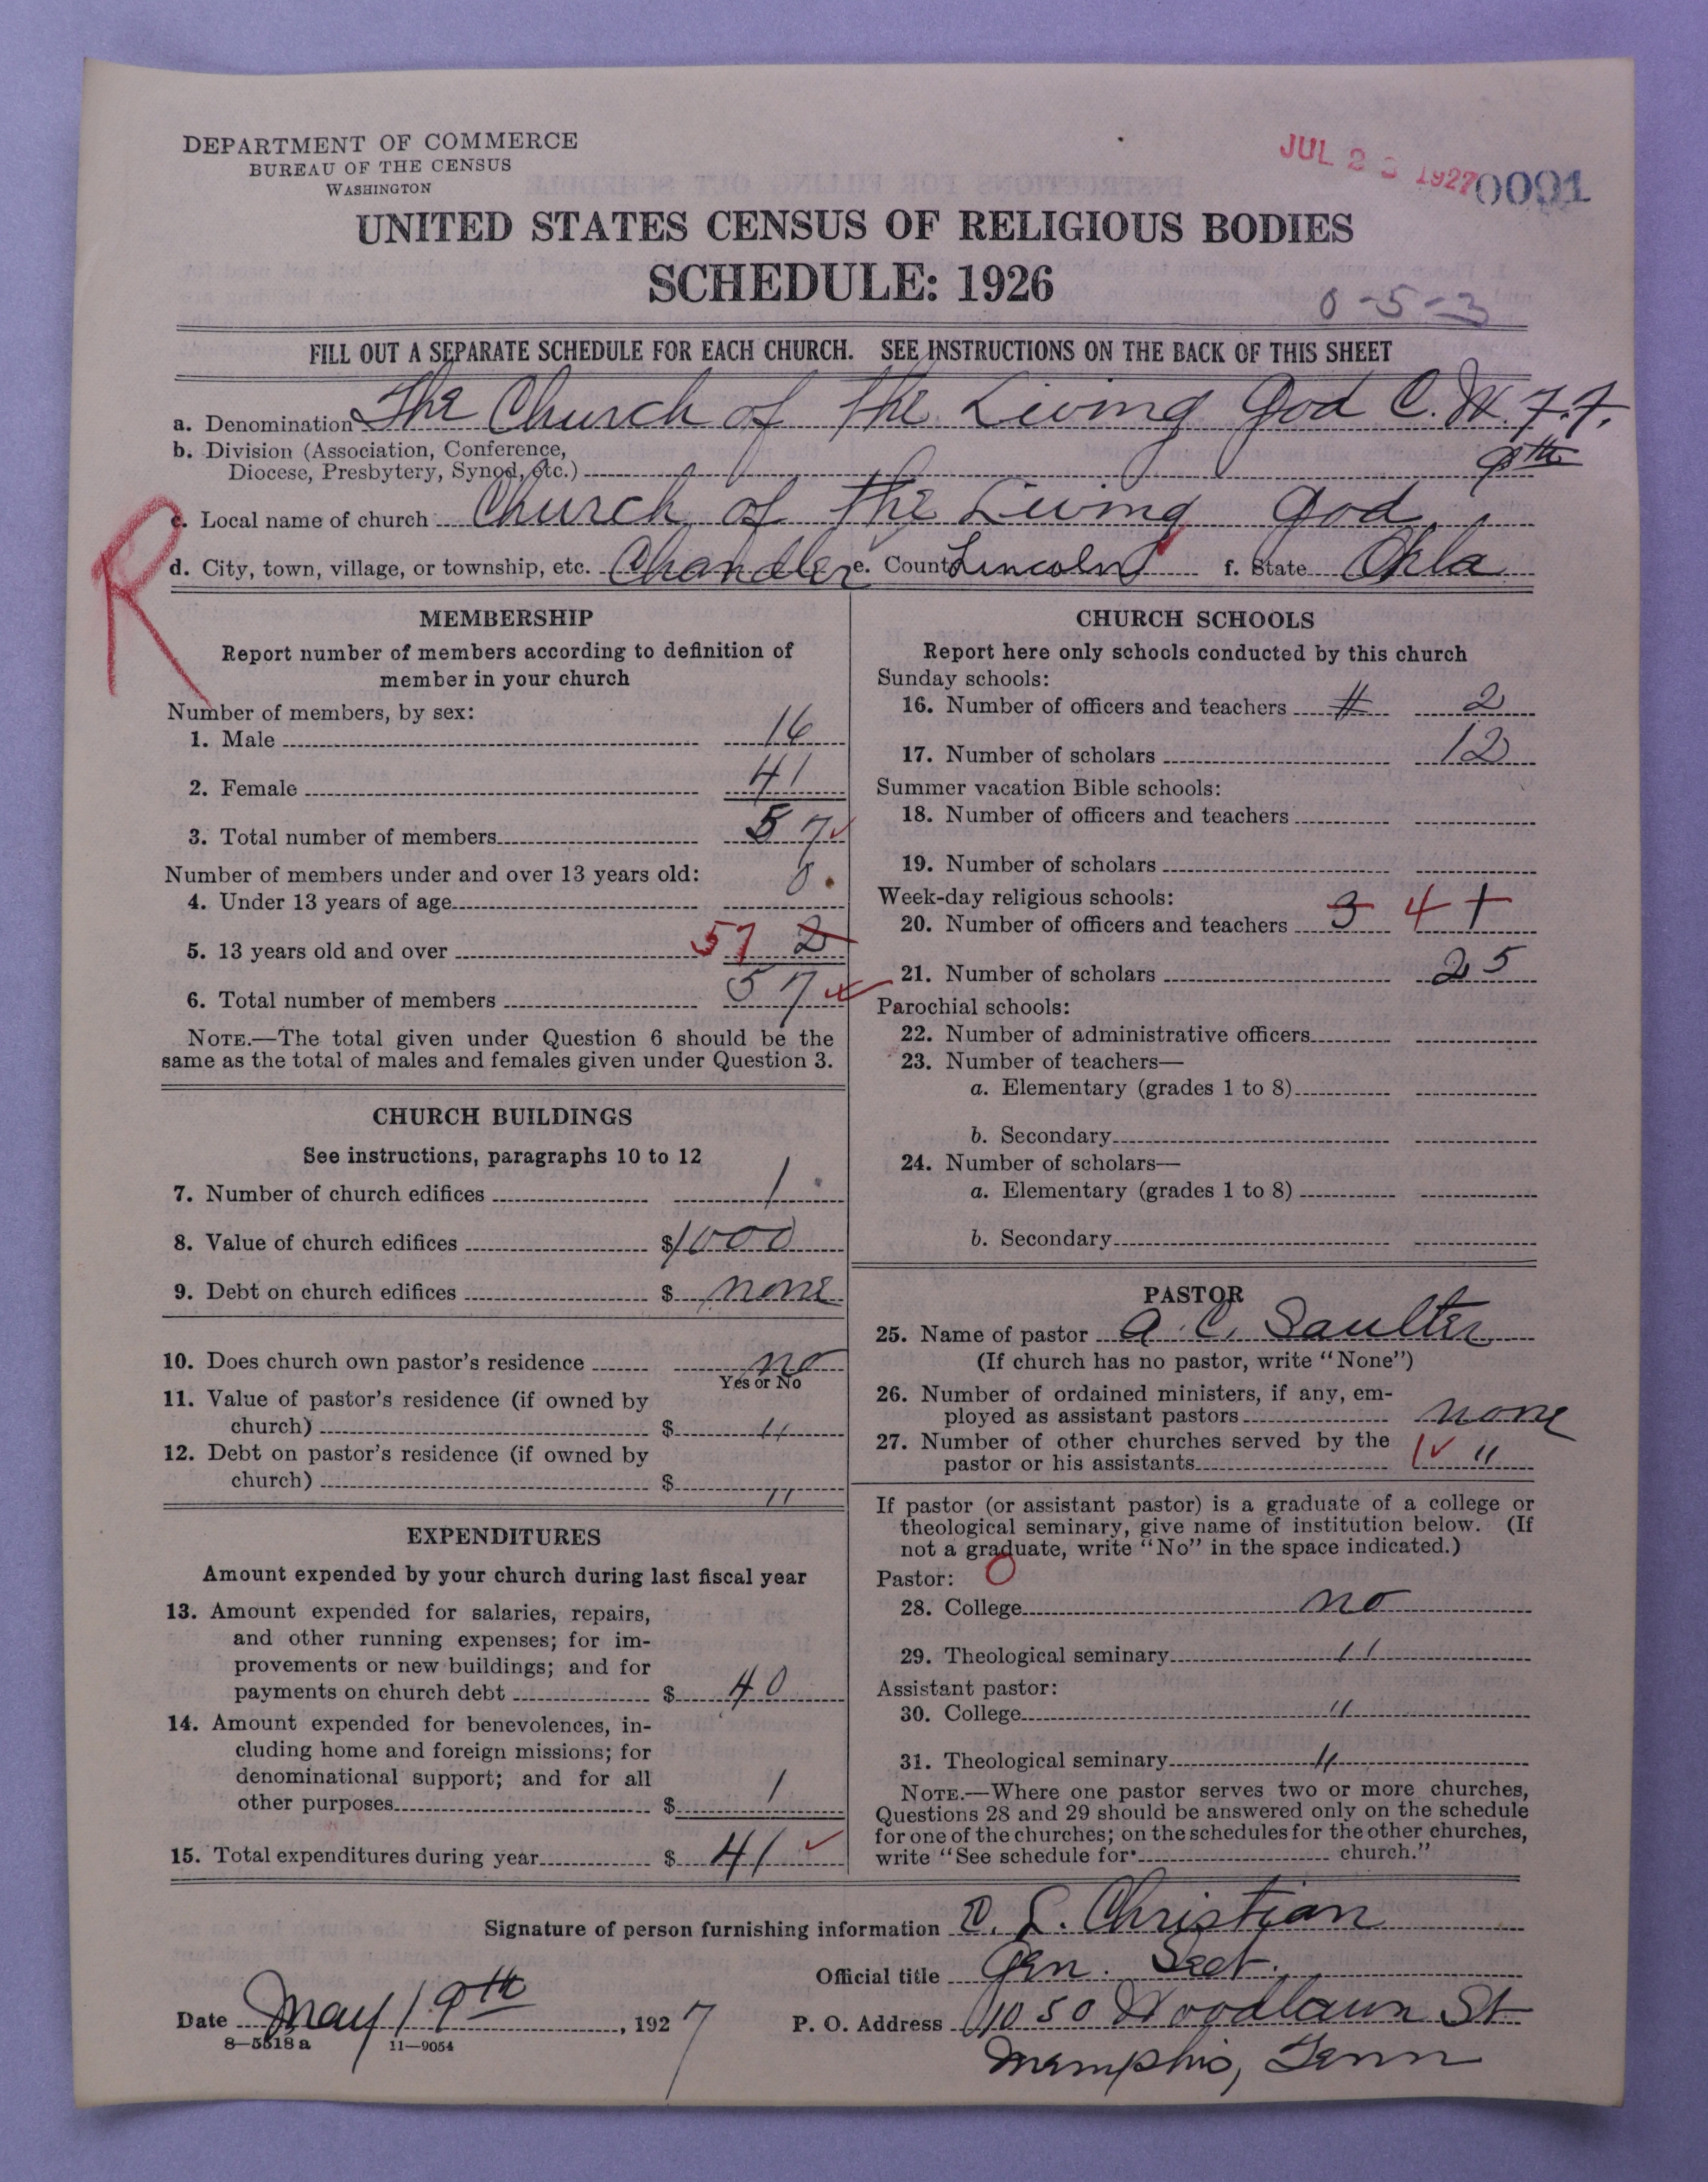 DEPARTMENT OF COMMERCE
BUREAU OF THE CENSUS
WASHINGTON
JUL 2 1927
0091
UNITED STATES CENSUS OF RELIGIOUS BODIES
SCHEDULE: 1926
0-5-3
FILL OUT A SEPARATE SCHEDULE FOR EACH CHURCH. SEE INSTRUCTIONS ON THE BACK OF THIS SHEET
a. Denomination The Church of the Living God C. W. F. F.
b. Division (Association, Conference,
Diocese, Presbytery, Synod, etc.) 9th
c. Local name of church Church of the Living God
R
d. City, town, village, or township, etc. Chandler e. County Lincoln f. State Okla
MEMBERSHIP
Report number of members according to definition of
member in your church
Number of members, by sex:
1. Male 16
2. Female 41
3. Total number of members 57
Number of members under and over 13 years old:
4. Under 13 years of age 0
5. 13 years old and over 57 2
6. Total number of members 57
NOTE.—The total given under Question 6 should be the
same as the total of males and females given under Question 3.
CHURCH BUILDINGS
See instructions, paragraphs 10 to 12
7. Number of church edifices 1
8. Value of church edifices $1000
9. Debt on church edifices $ none
10. Does church own pastor's residence no
Yes or No
11. Value of pastor's residence (if owned by
church) $ "
12. Debt on pastor's residence (if owned by
church) $ "
EXPENDITURES
Amount expended by your church during last fiscal year
13. Amount expended for salaries, repairs,
and other running expenses; for im-
provements or new buildings; and for
payments on church debt $ 40
14. Amount expended for benevolences, in-
cluding home and foreign missions; for
denominational support; and for all
other purposes $ 1
15. Total expenditures during year $ 41
CHURCH SCHOOLS
Report here only schools conducted by this church
Sunday schools:
16. Number of officers and teachers # 2
17. Number of scholars 12
Summer vacation Bible schools:
18. Number of officers and teachers
19. Number of scholars
Week-day religious schools:
20. Number of officers and teachers 3 4 +
21. Number of scholars 25
Parochial schools:
22. Number of administrative officers
23. Number of teachers—
a. Elementary (grades 1 to 8)
b. Secondary
24. Number of scholars—
a. Elementary (grades 1 to 8)
b. Secondary
PASTOR
25. Name of pastor A. C. Saulter
(If church has no pastor, write "None")
26. Number of ordained ministers, if any, em-
ployed as assistant pastors none
27. Number of other churches served by the
pastor or his assistants 1 "
If pastor (or assistant pastor) is a graduate of a college or
theological seminary, give name of institution below. (If
not a graduate, write "No" in the space indicated.)
Pastor: 0
28. College no
29. Theological seminary "
Assistant pastor:
30. College "
31. Theological seminary "
NOTE.—Where one pastor serves two or more churches,
Questions 28 and 29 should be answered only on the schedule
for one of the churches; on the schedules for the other churches,
write "See schedule for church."
Signature of person furnishing information C. L. Christian
Official title Gen. Sect.
Date May 19th, 1927
P. O. Address 1050 Woodlawn St
Memphis, Tenn
8—5518 a 11—9054